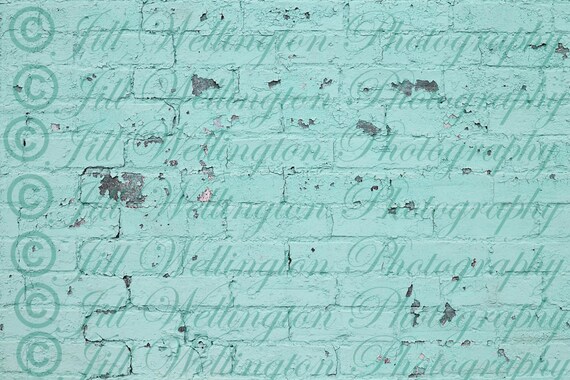 © Jill Wellington Photography
© Jill Wellington Photography
© Jill Wellington Photography
© Jill Wellington Photography
© Jill Wellington Photography
© Jill Wellington Photography
© Jill Wellington Photography